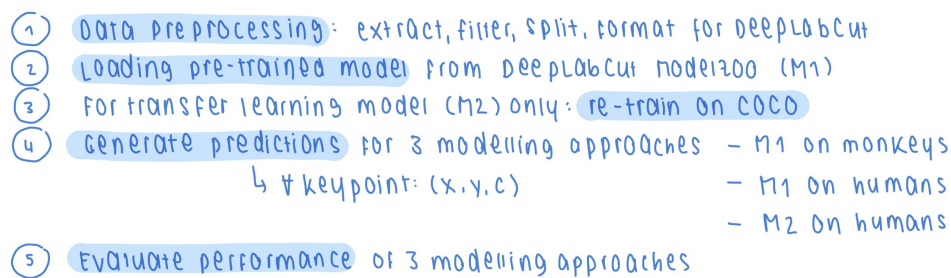 1 Data preprocessing: extract, filter, split, format for DeepLabCut
2 Loading pre-trained model from DeepLabCut Modelzoo (M1)
3 For transfer learning model (M2) only: re-train on COCO
4 Generate predictions for 3 modelling approaches - M1 on monkeys
↳ ∀ keypoint: (x,y,c) - M1 on humans
- M2 on humans
5 Evaluate performance of 3 modelling approaches